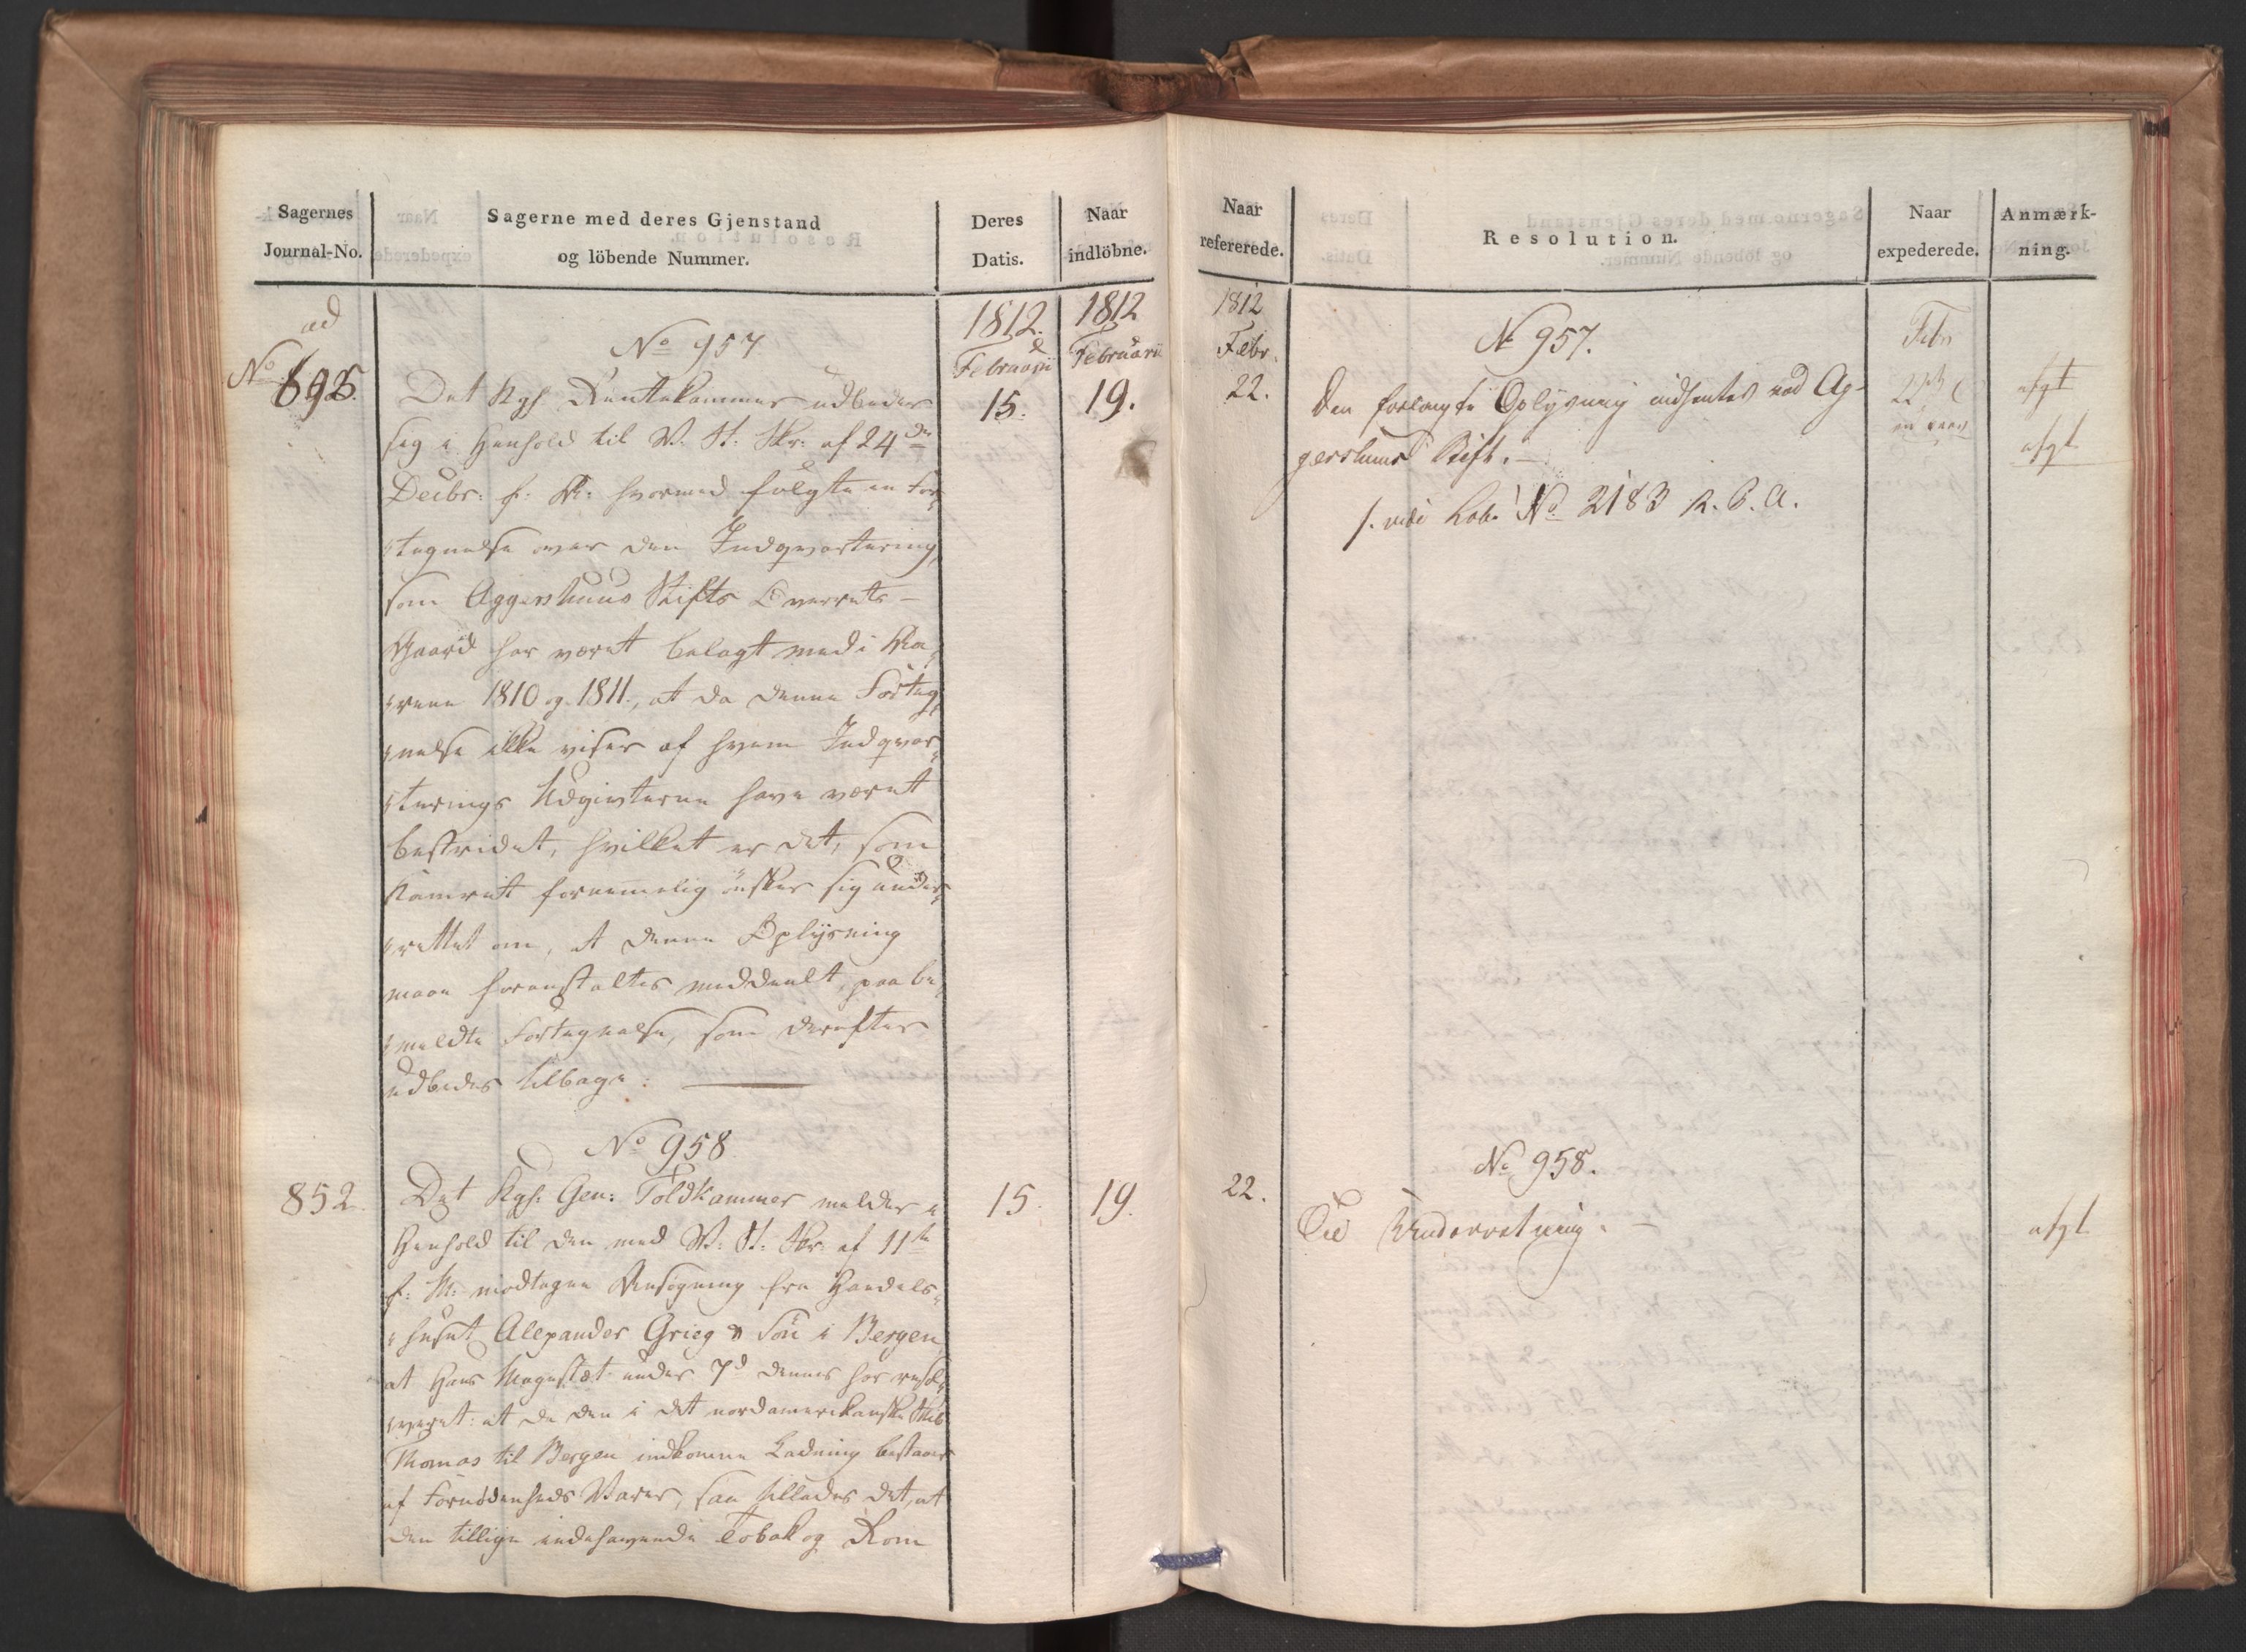 Sagernes
Journal-No.
Sagerne med deres Gjenstand
og löbende Nummer.
Deres
Datis.
Naar
indlöbne.
ad
No 695.
1812.
Februarii
15.
1812
Februarii
19.
No 957
Det Kgl. Rentekammer udbeder
sig i Henhold til V. St: Skr: af 24de
Decbr: f: A: hvormed fulgte en For-
tegnelse over den Indqvartering,
som Aggershuus Stifts Overrets-
Gaard har været belagt med i Aa-
rene 1810 og 1811., at da denne Forteg-
nelse ikke viser af hvem Indqvar-
terings Udgivterne have været
bestridet, hvilket er det, som
Kamret fornemelig önsker sig under-
rettet om, at denne Oplÿsning
maae foranstaltes meddeelt paa be-
meldte Fortegnelse, som derefter
udbedes tilbage:
No 958
852.
Det Kgl. Gen: Toldkammer melder i
Henhold til den med V: St: Skr: af 11te
f: M: modtagne Ansögning fra Handels-
huset Alexander Grieg & Sön i Bergen
at Hans Magestæt under 7d dennes har resol-
veret: at da den i det nordamerikanske Skib
Thomas til Bergen indkomne Ladning bestaaer
af Fornödenheds Varer, saa tillades det, at
den tillige indehavende Tobak og Rom
15.
19.
Naar
refererede.
Resolution.
Naar
expederede.
Anmærk-
ning.
1812
Febr.
22.
No 957.
Den forlangte Oplysning indhentes ved Ag-
gershuus Stift.
/. vide Lob. No 2183 R. P. A.
Febr
22
afgt
afgt
No 958.
22.
Til Underretning.
afgt